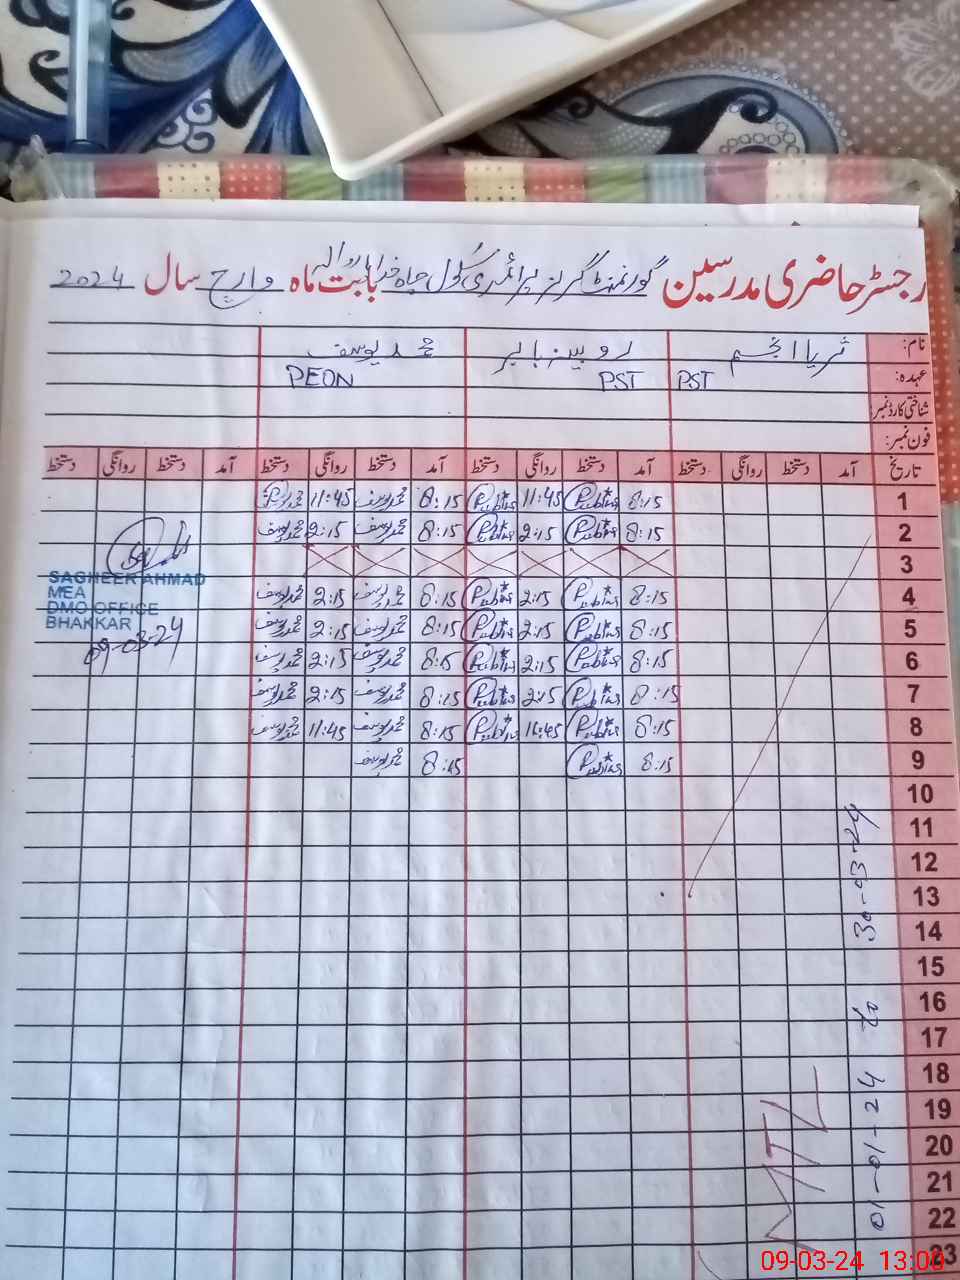 رجسٹر حاضری مدرسین گورنمنٹ گرلز پرائمری سکول چاہ بابت ماہ مارچ سال 2024
نام: ثریا انجم روبینہ بابر محمد یوسف
عہدہ: PST PST PEON
شناختی کارڈ نمبر:
فون نمبر:
تاریخ آمد دستخط روانگی دستخط آمد دستخط روانگی دستخط آمد دستخط روانگی دستخط آمد دستخط روانگی دستخط
1 8:15 11:45 8:15 محمد یوسف 11:45 محمد یوسف
2 8:15 2:15 8:15 محمد یوسف 2:15 محمد یوسف
3
4 8:15 2:15 8:15 محمد یوسف 2:15 محمد یوسف
5 8:15 2:15 8:15 محمد یوسف 2:15 محمد یوسف
6 8:15 2:15 8:15 محمد یوسف 2:15 محمد یوسف
7 8:15 2:15 8:15 محمد یوسف 2:15 محمد یوسف
8 8:15 11:45 8:15 محمد یوسف 11:45 محمد یوسف
9 8:15 8:15 محمد یوسف
10
11
12
13
14
15
16
17
18
19
20
21
22
23
SAGHEER AHMAD
MEA
DMO OFFICE
BHAKKAR
09-03-24
MTL
01-01-24 to 30-03-24
09-03-24 13:00